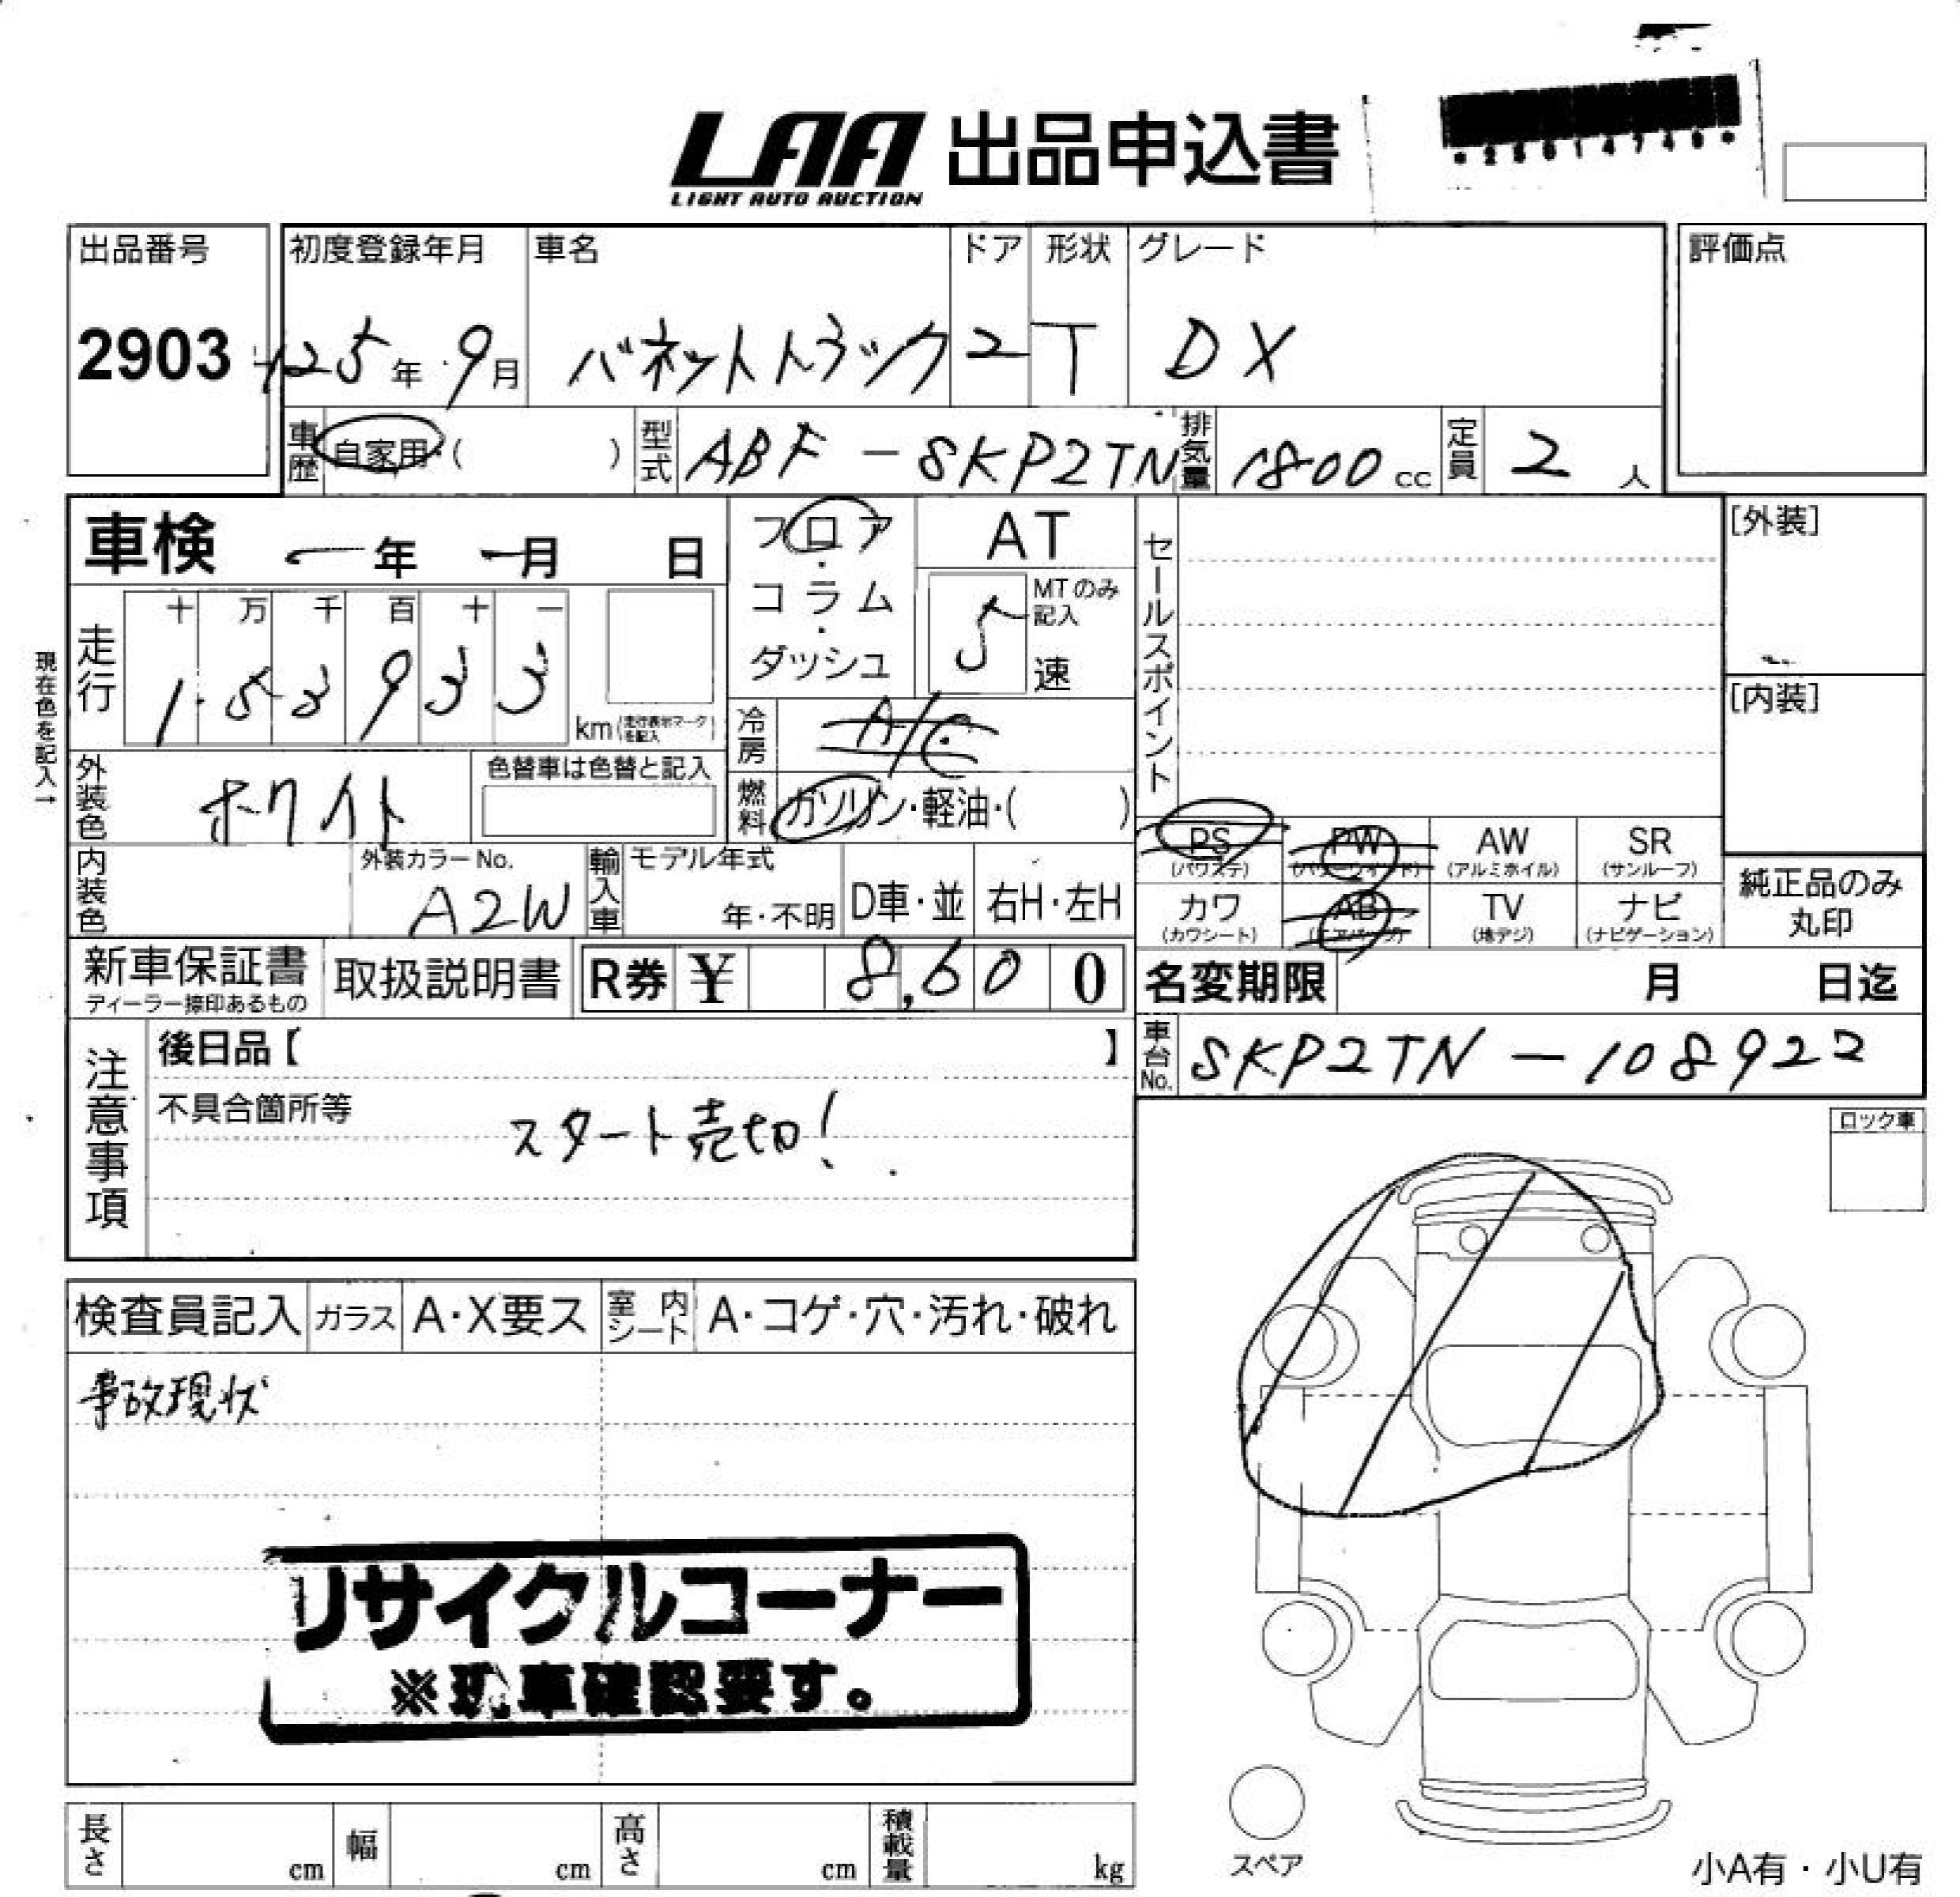 LAA 出品申込書
LIGHT AUTO AUCTION
*25014749*
出品番号 初度登録年月 車名 ドア 形状 グレード 評価点
2903 H25年 9月 バネットトラック 2 T DX
車歴 自家用・( ) 型式 ABF-SKP2TN 排気量 1800cc 定員 2人
車検 ー年 ー月 日 フロア・コラム・ダッシュ AT
5速 MTのみ記入
セールスポイント
[外装]
[内装]
現在色を記入→
走行 十 万 千 百 十 一
1 5 3 9 3 3 km(走行表示マークを記入)
冷房 A/C
外装色 ホワイト 色替車は色替と記入
燃料 ガソリン・軽油・( )
PS PW AW SR
(パワステ) (パワーウィンド) (アルミホイル) (サンルーフ)
内装色 外装カラーNo. A2W 輸入車 モデル年式 年・不明 D車・並 右H・左H
カワ AB TV ナビ
(カワシート) (エアバッグ) (地デジ) (ナビゲーション)
純正品のみ丸印
新車保証書 取扱説明書 R券 ¥ 8,600
ディーラー捺印あるもの
名変期限 月 日迄
車台No. SKP2TN-108922
注意事項
後日品【 】
不具合箇所等
スタート売切!
ロック車
検査員記入 ガラス A・X要ス 室内シート A・コゲ・穴・汚れ・破れ
事故現状
リサイクルコーナー
※現車確認要す。
長さ cm 幅 cm 高さ cm 積載量 kg
スペア
小A有・小U有